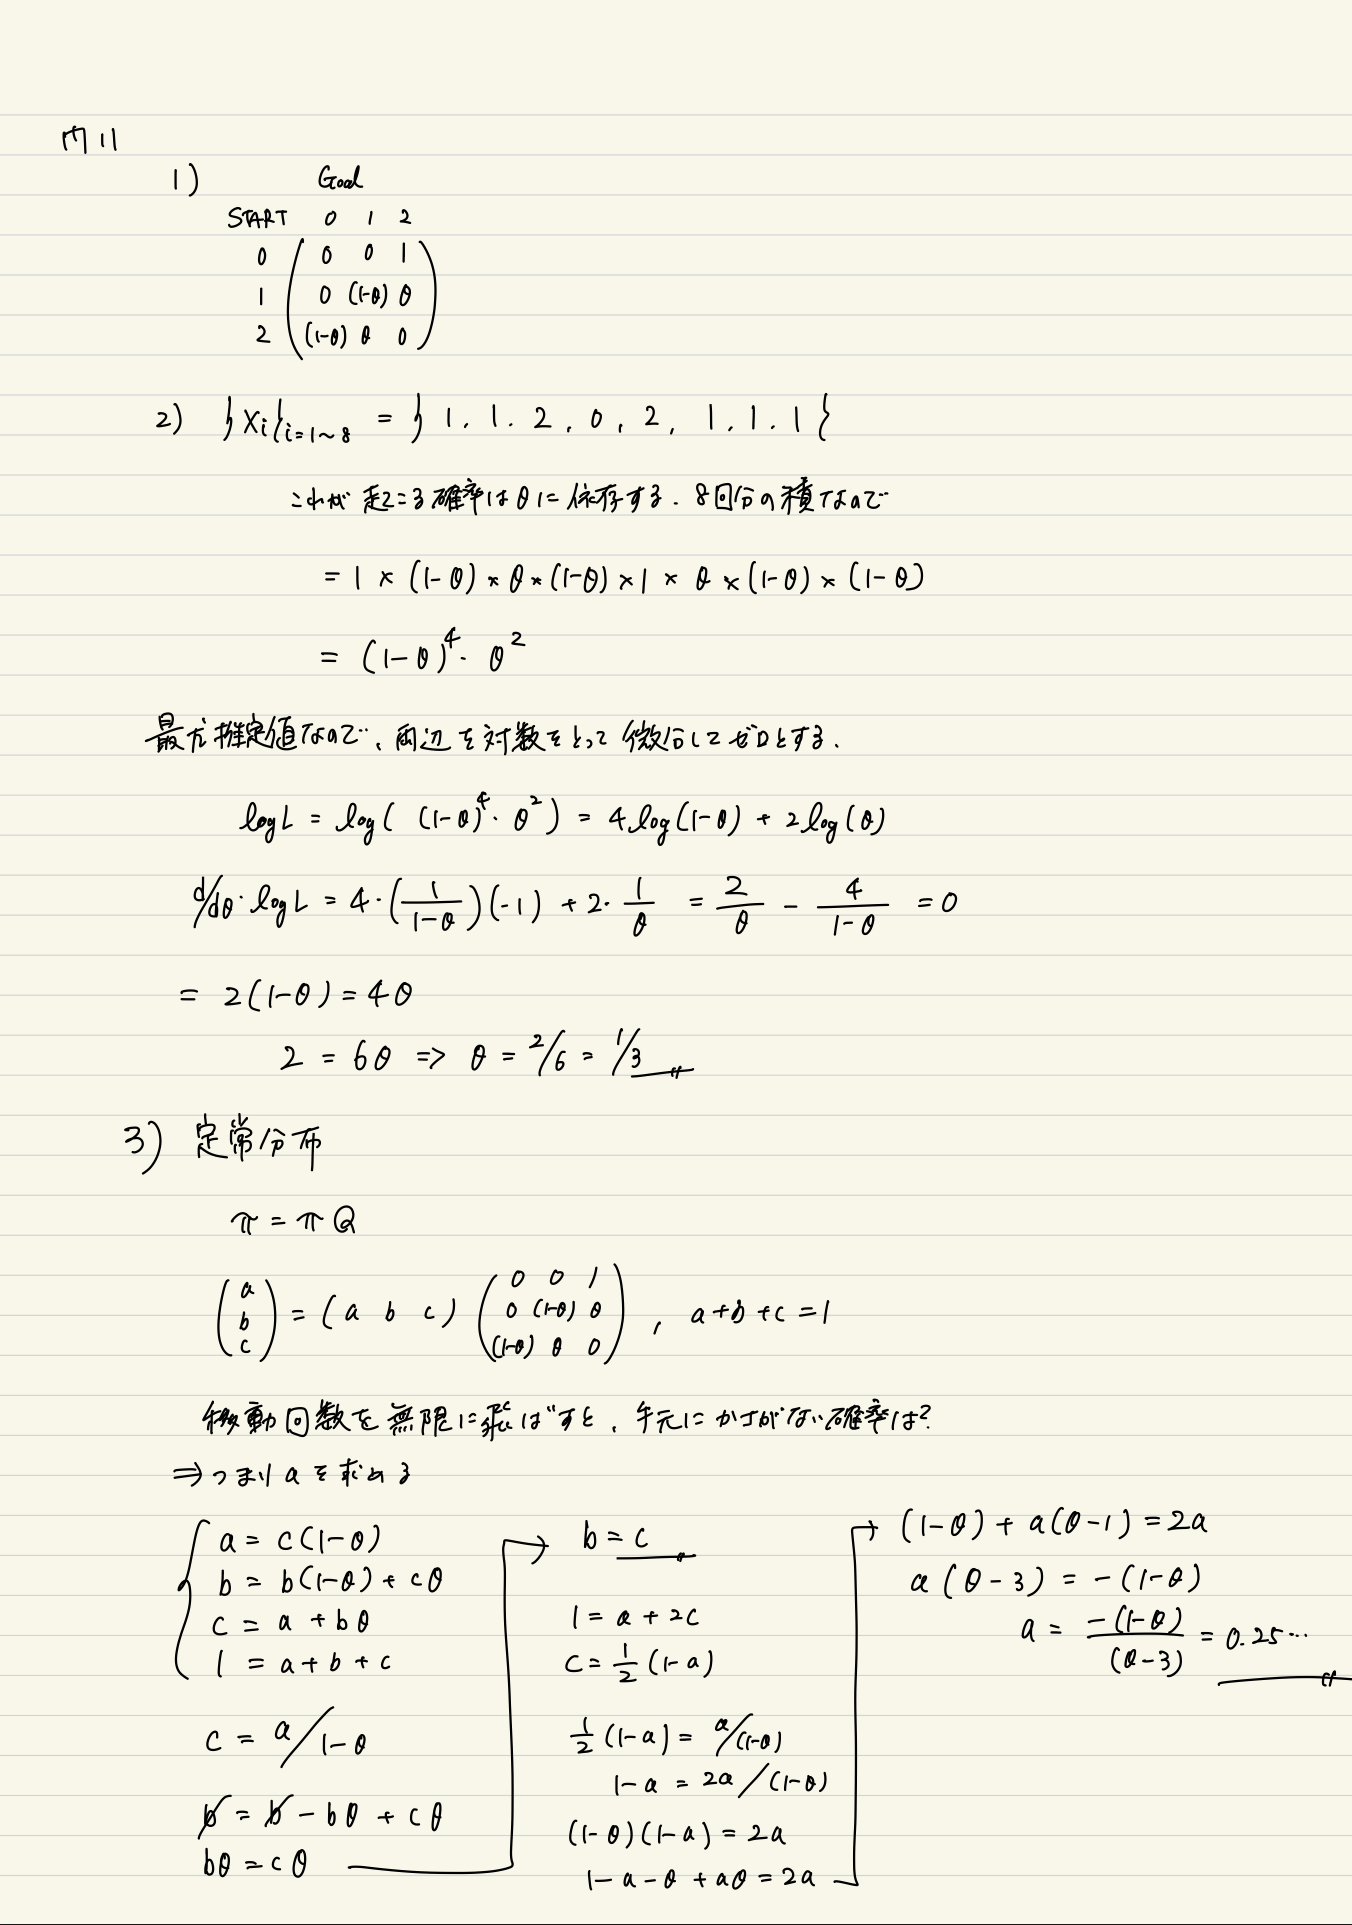 問11
1)
Goal
START 0 1 2
0 0 0 1
1 0 (1-θ) θ
2 (1-θ) θ 0
2) {Xi}i=1~8 = { 1. 1. 2, 0, 2, 1. 1. 1 }
これが起こる確率はθに依存する. 8回分の積なので
= 1 × (1-θ) × θ × (1-θ) × 1 × θ × (1-θ) × (1-θ)
= (1-θ)^4 · θ^2
最尤推定値なので、両辺を対数をとって微分してゼロとする.
logL = log( (1-θ)^4 · θ^2 ) = 4log(1-θ) + 2log(θ)
d/dθ · logL = 4 · (1/(1-θ))(-1) + 2 · 1/θ = 2/θ - 4/(1-θ) = 0
= 2(1-θ) = 4θ
2 = 6θ => θ = 2/6 = 1/3
3) 定常分布
π = πQ
(a b c) = (a b c) (0 0 1 0 (1-θ) θ (1-θ) θ 0) , a+b+c=1
移動回数を無限に飛ばすと, 手元にかさがない確率は?
⇒つまりaを求める
a = c(1-θ)
b = b(1-θ) + cθ
c = a + bθ
1 = a + b + c
c = a/1-θ
b = b - bθ + cθ
bθ = cθ
→ b = c
1 = a + 2c
c = 1/2 (1-a)
1/2 (1-a) = a/(1-θ)
1-a = 2a/(1-θ)
(1-θ)(1-a) = 2a
1-a-θ + aθ = 2a
→ (1-θ) + a(θ-1) = 2a
a(θ-3) = -(1-θ)
a = -(1-θ)/(θ-3) = 0.25…